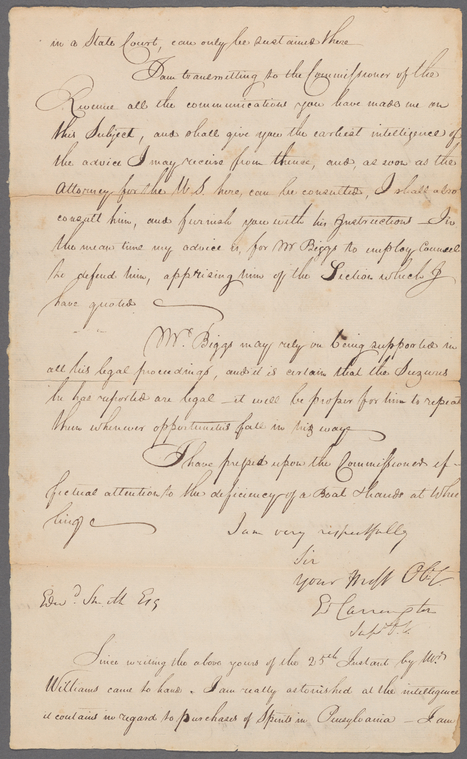 in a State Court, can only be sustained there
I am transmitting to the Commissioner of the
Revenue all the communications you have made me on
this Subject, and shall give you the earliest intelligence of
the advice I may receive from thence, and, as soon as the
Attorney for the U S here, can be consulted, I shall also
consult him, and furnish you with his Instructions – In
the mean time my advice is, for Mr Biggs to employ Counsel
to defend him, apprising him of the Section which I
have quoted
Mr. Biggs may rely on being supported in
all his legal proceedings, and it is certain that the Seizures
he has reported are legal – it will be proper for him to repeat
them whenever opportunities fall in his way
I have pressed upon the Commissioner ef-
fectual attention to the deficiency of a Boat & hands at Whee
ling
I am very respectfully
Sir
Your Most Obt
Edwd. Smith Esq
Ed Carrington
Since writing the above yours of the 25th Instant by Mr.
Williams came to hand. I am really astonished at the intelligence
it contains in regard to purchases of Spirits in Pensylvania – I am